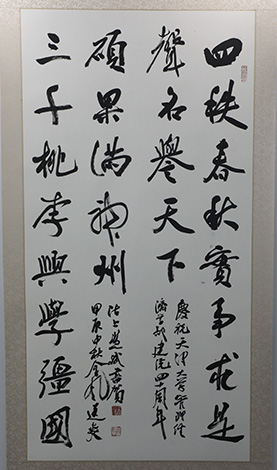 四秩春秋實事求是
聲名譽天下
慶祝天津大学管理經
濟学部建院四十周年
碩果滿神州
三千桃李興學疆國
沽上
甲辰中秋金風送爽